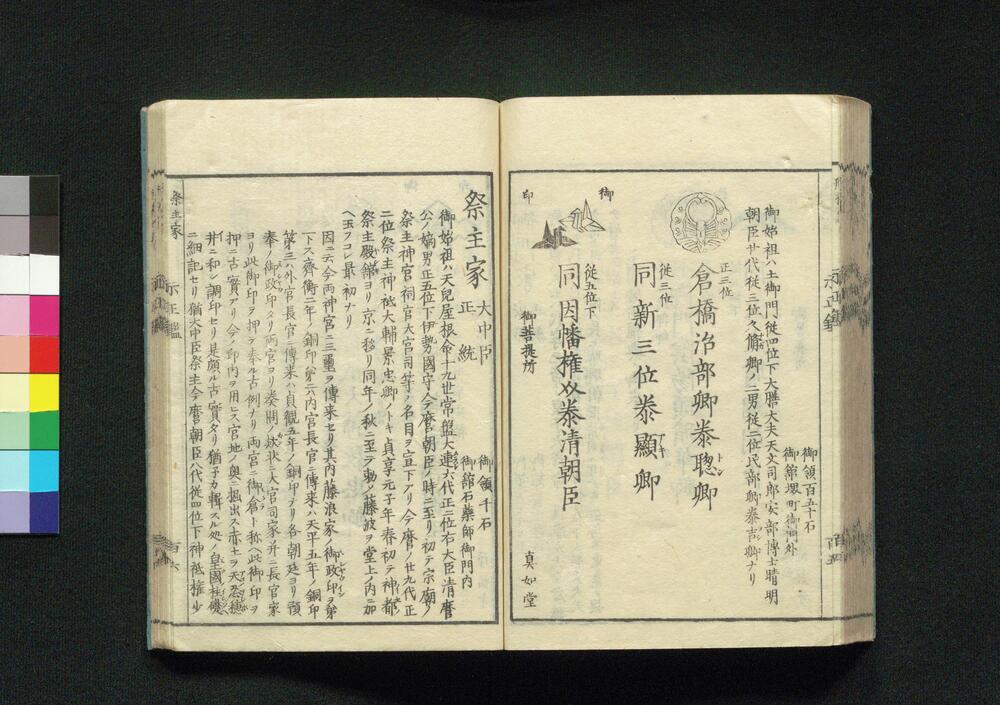 御始祖ハ土御門従四位下大膳大夫天文司郎安部博士晴明
朝臣廿代従三位久脩卿ノ二男従二位民部卿泰吉卿ナリ
御領百五十石
御舘堺町御門外
正三位
倉橋治部卿泰聰卿
トシ
従三位
同新三位泰顯卿
アキ
従五位下
同因幡権介泰清朝臣
御
印
御菩提所
真如堂
祭主家
大中臣
正統
御領千石
御舘石薬師御門内
御始祖ハ天兒屋根命十九世常盤大連六代正二位右大臣清麿
公ノ嫡男正五位下伊勢國守今麿朝臣ノ時ニ至リ初テ宗廟ノ
祭主神官祠官大宮司等ノ名目ヲ宣下アリ今麿ノ廿九代正
二位祭主神祇大輔景忠卿ノトキ貞享元子年春初テ神都
祭主殿舘ヨリ京ニ移リ同年ノ秋ニ至テ勅ノ藤波ヲ堂上ノ内ニ加
ヘ玉フコレ最初ナリ
因ニ云今両神宮ニ三璽ヲ傳来セリ其内藤浪家ノ御政印ヲ第
一トス齊衡二年ノ銅印第二六内宮長官ニ傳来ハ天平五年ノ銅印
第三八外宮長官ニ傳来ハ貞観五年ノ銅印ナリ各朝廷ヨリ領
奉ノ御政印タリ両宮ヨリ奏聞ノ状ニ大宮司家并ニ長官家
ヨリ此御印ヲ押テ奉ル古例ナリ両宮ニ御倉ト称ヘ此御印ヲ
押ニ古實アリ今ノ印肉ヲ用ヒス宮地ノ奥ニ掘出ス赤土ヲ天忍穂
井ニ和シ調印セリ是頗ル古實タリ猶子カ輯スル処ノ皇國
ニ細記セリ猶大中臣祭主今麿朝臣八代従四位下神祇権少
祭主家